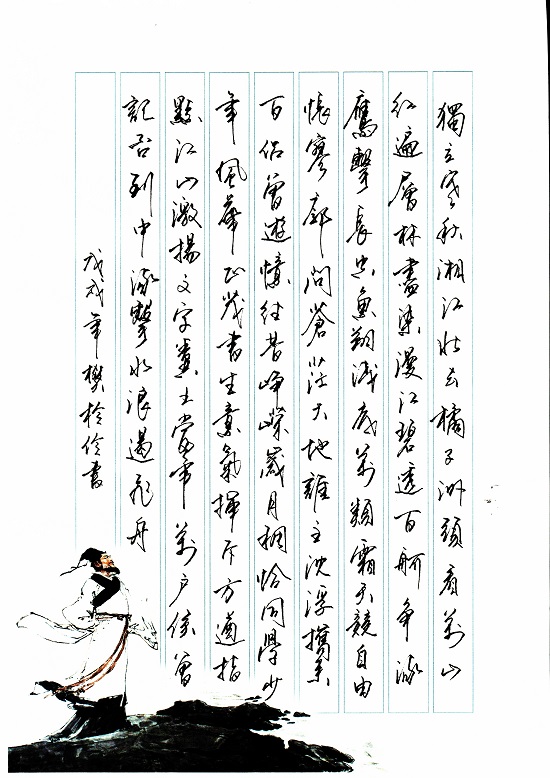 獨立寒秋湘江北去橘子洲頭看萬山
紅遍層林盡染漫江碧透百舸爭流
鷹擊長空魚翔淺底萬類霜天競自由
悵寥廓問蒼茫大地誰主沈浮攜來
百侶曾遊憶往昔崢嶸歲月稠恰同學少
年風華正茂書生意氣揮斥方遒指
點江山激揚文字糞土當年萬戶侯曾
記否到中流擊水浪遏飛舟
戊戌年樊伶書